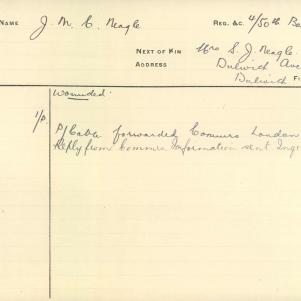 NAME J. M. C. Neagle REG. &C. 4/50th Ba
NEXT OF KIN Mrs S. J. Neagle.
ADDRESS Dulwich Ave
Dulwich
Wounded.
P/Cable forwarded Commrs London
Reply from Commrs Information sent